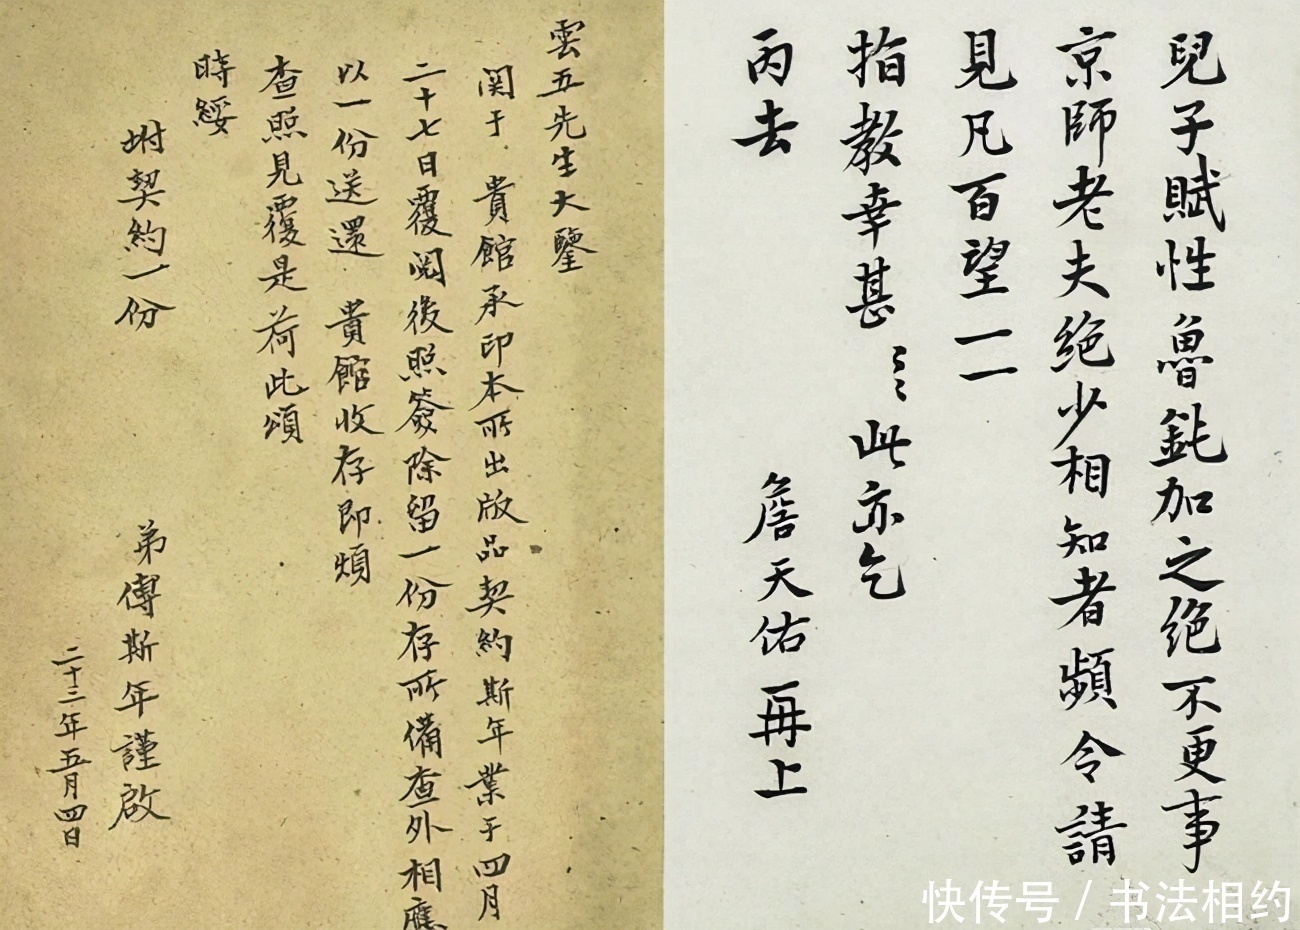 雲五先生大鑒
関于 貴館承印本所出版品契約斯年業于四月
二十七日覆閱後照簽除留一份存所備查外相應
以一份送還 貴館收存即煩
查照見覆是荷此頌
時綏
坿契約一份
弟傅斯年謹啟
二十三年五月四日
兒子賦性魯鈍加之絕不更事
京師老夫絕少相知者頻令請
見凡百望一一
指教幸甚〻〻此亦乞
丙去
詹天佑再上
快传号 / 书法相约